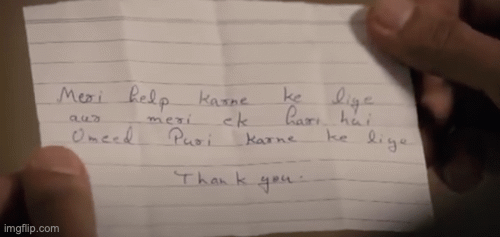 Meri help karne ke liye
aur meri ek hari hai
Umeed Puri karne ke liye
Thank you.
imgflip.com